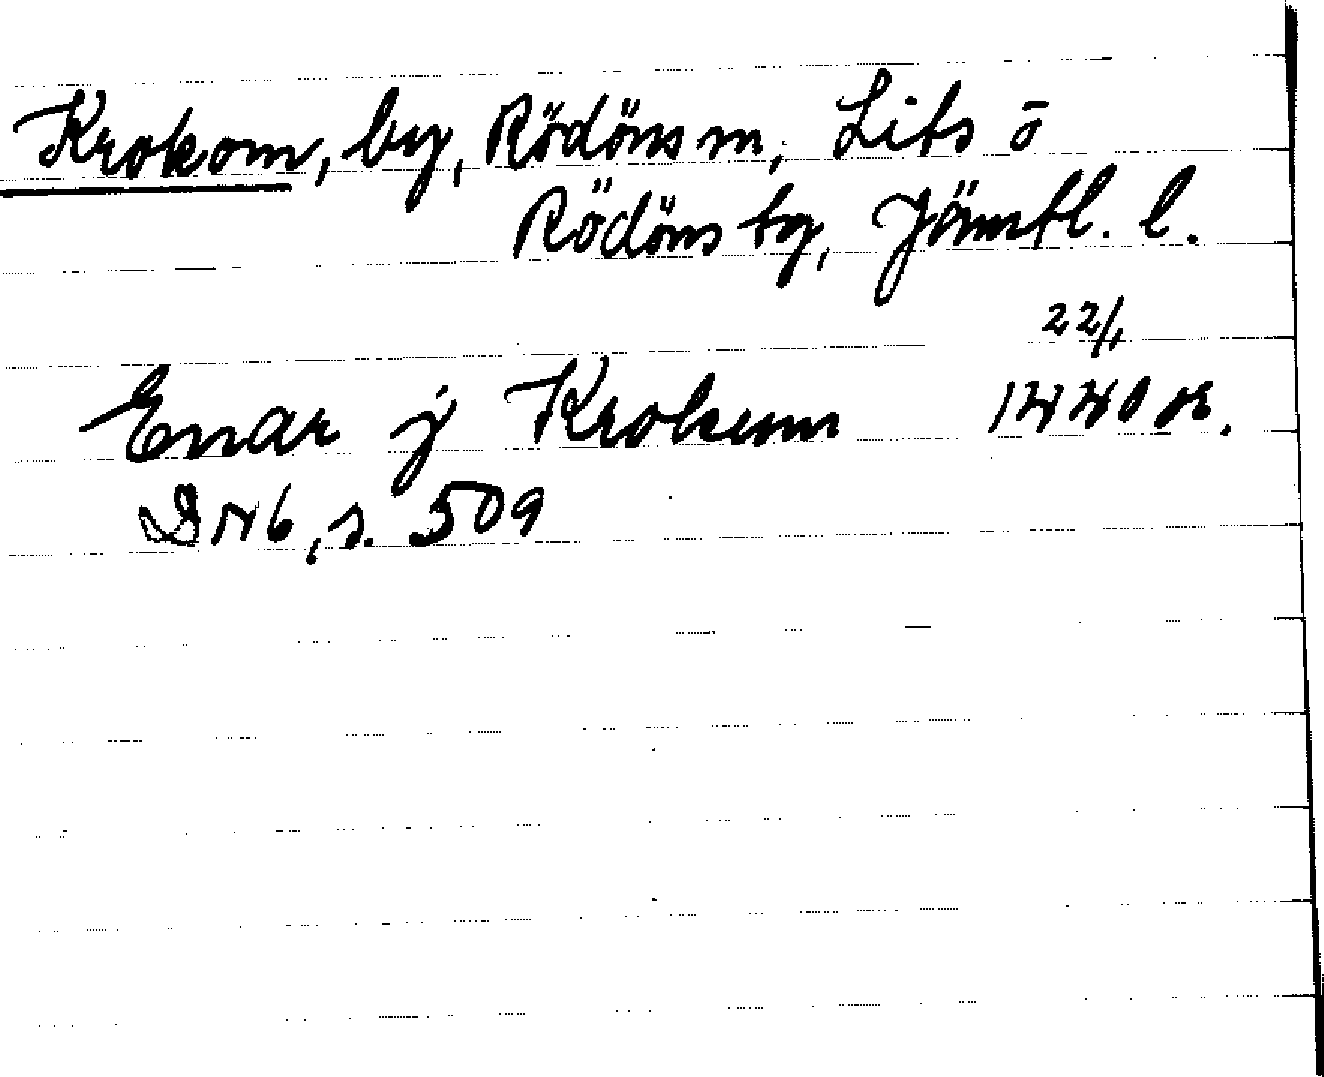 Krokom, by, Rödöns sn, Lits o
Rödöns tg, Jämtl. l.
22/1
Enar j Krokum 1440 or.
DN 6, s. 509